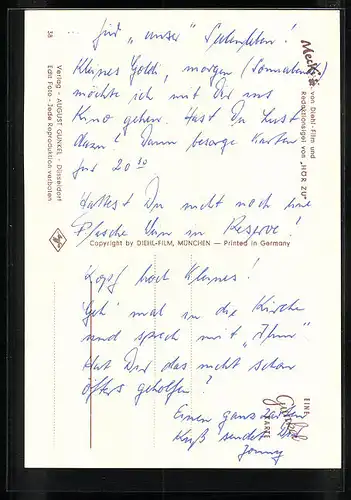 ... für „unser" Seelenleben!
Kleines Goldi, morgen (Sonnabend)
möchte ich mit Dir ins
Kino gehen. Hast Du Lust
dazu? Dann besorge Karten
für 20¹⁰
Hattest Du nicht noch eine
Flasche Wein in Reserve!
Copyright by DIEHL-FILM, MÜNCHEN — Printed in Germany
Kopf hoch Kleines!
Geh' mal in die Kirche
und sprech mit "Ihm"
Hat Dir das nicht schon
öfters geholfen?
Einen ganz zarten
Kuß sendet Dir
Jonny
Mecki
von Diehl-Film und
Redaktionsigel von „HÖR ZU"
38
Verlag - AUGUST GUNKEL - Düsseldorf
Edit Foto - Jede Reproduktion verboten
EINE
Gunkel
KARTE